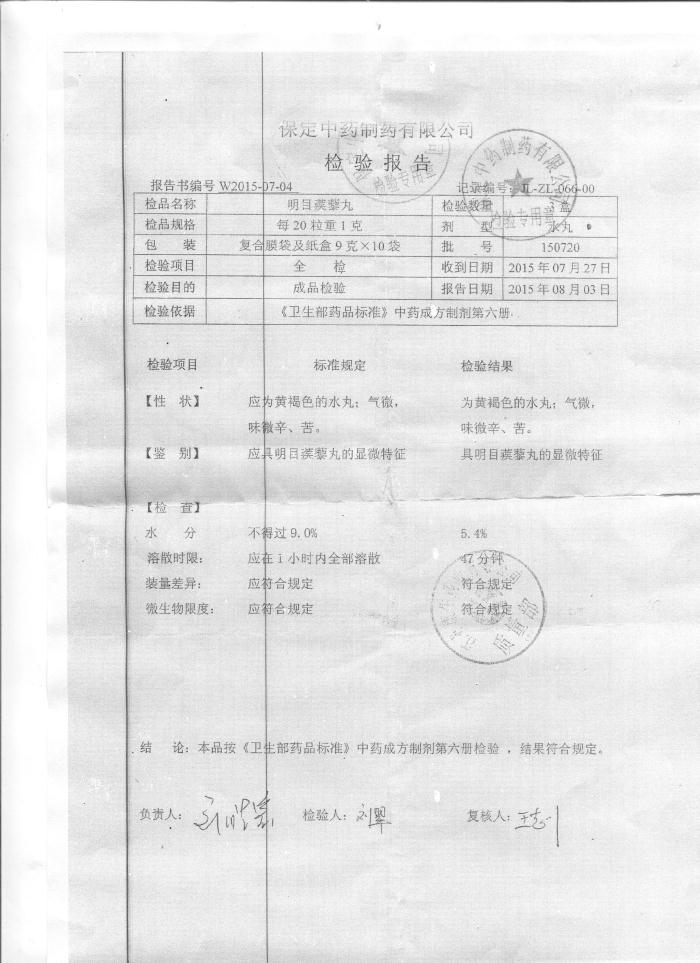 保定中药制药有限公司
检 验 报 告
报告书编号 W2015-07-04 记录编号: JL-ZL-066-00
检品名称 明目蒺藜丸 检验数量 盒
检品规格 每 20 粒重 1 克 剂 型 水丸
包 装 复合膜袋及纸盒 9 克×10 袋 批 号 150720
检验项目 全 检 收到日期 2015 年 07 月 27 日
检验目的 成品检验 报告日期 2015 年 08 月 03 日
检验依据 《卫生部药品标准》中药成方制剂第六册
检验项目 标准规定 检验结果
【性 状】 应为黄褐色的水丸；气微， 为黄褐色的水丸；气微，
味微辛、苦。 味微辛、苦。
【鉴 别】 应具明目蒺藜丸的显微特征 具明目蒺藜丸的显微特征
【检 查】
水 分 不得过 9.0% 5.4%
溶散时限： 应在 1 小时内全部溶散 47 分钟
装量差异： 应符合规定 符合规定
微生物限度： 应符合规定 符合规定
结 论：本品按《卫生部药品标准》中药成方制剂第六册检验 ，结果符合规定。
负责人： 检验人：刘翠 复核人：
中药制药有限公司
检验专用章
检验专用章
质量部